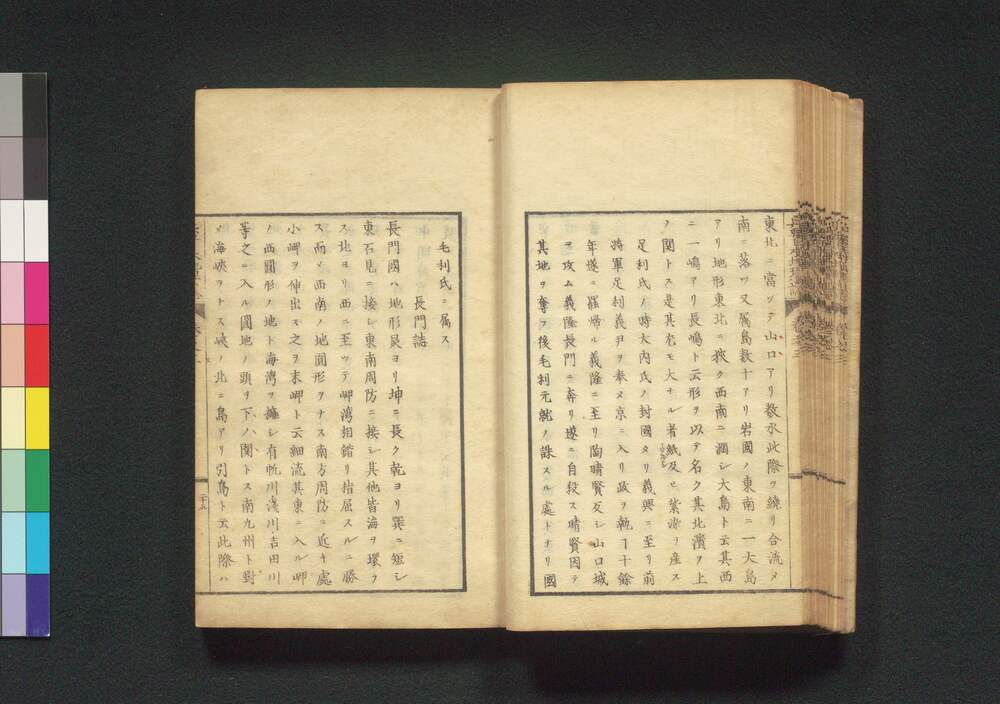 東北ニ當ツテ山口アリ数水此際ヲ繞リ合流メ
南ニ落ツ又属島数十アリ岩國ノ東南ニ一大島
アリ地形東北ニ狹ク西南ニ濶シ大島ト云其西
ニ一嶋アリ長嶋ト云形ヲ以テ名ク其北濱ヲ上
ノ関トス是其尤モ大ナル者紙及ヒ紫海ヲ産ス
足利氏ノ時大内氏ノ封國タリ義興ニ至リ前
將軍足利義尹ヲ奉メ京ニ入リ政ヲ執ル十餘
年遂ニ罷帰ル義隆ニ至リ陶晴賢叛シ山口城
ヲ攻ム義隆長門ニ奔リ遂ニ自殺ス晴賢因テ
其地ヲ奪フ後毛利元就ノ誅スル處トナリ國
毛利氏ニ属ス
長門誌
長門國ハ地形艮ヨリ坤ニ長ク乾ヨリ巽ニ短シ
東石見ニ接シ東南周防ニ接シ其他皆海ヲ環ラ
ス北ヨリ西ニ至ツテ岬湾相錯リ指屈スルニ勝
ス而メ西南ノ地圓形ヲナス南方周防ニ近キ處
小岬ヲ伸出ス之ヲ末岬ト云細流其東ニ入ル岬
ノ西圓形ノ地ト海湾ヲ擁シ有帆川淺川吉田川
等之ニ入ル圓地ノ頭ヲ下ノ関トス南九州ト對
メ海峡ヲトス峡ノ北ニ島アリ引島ト云此際ハ
二十五